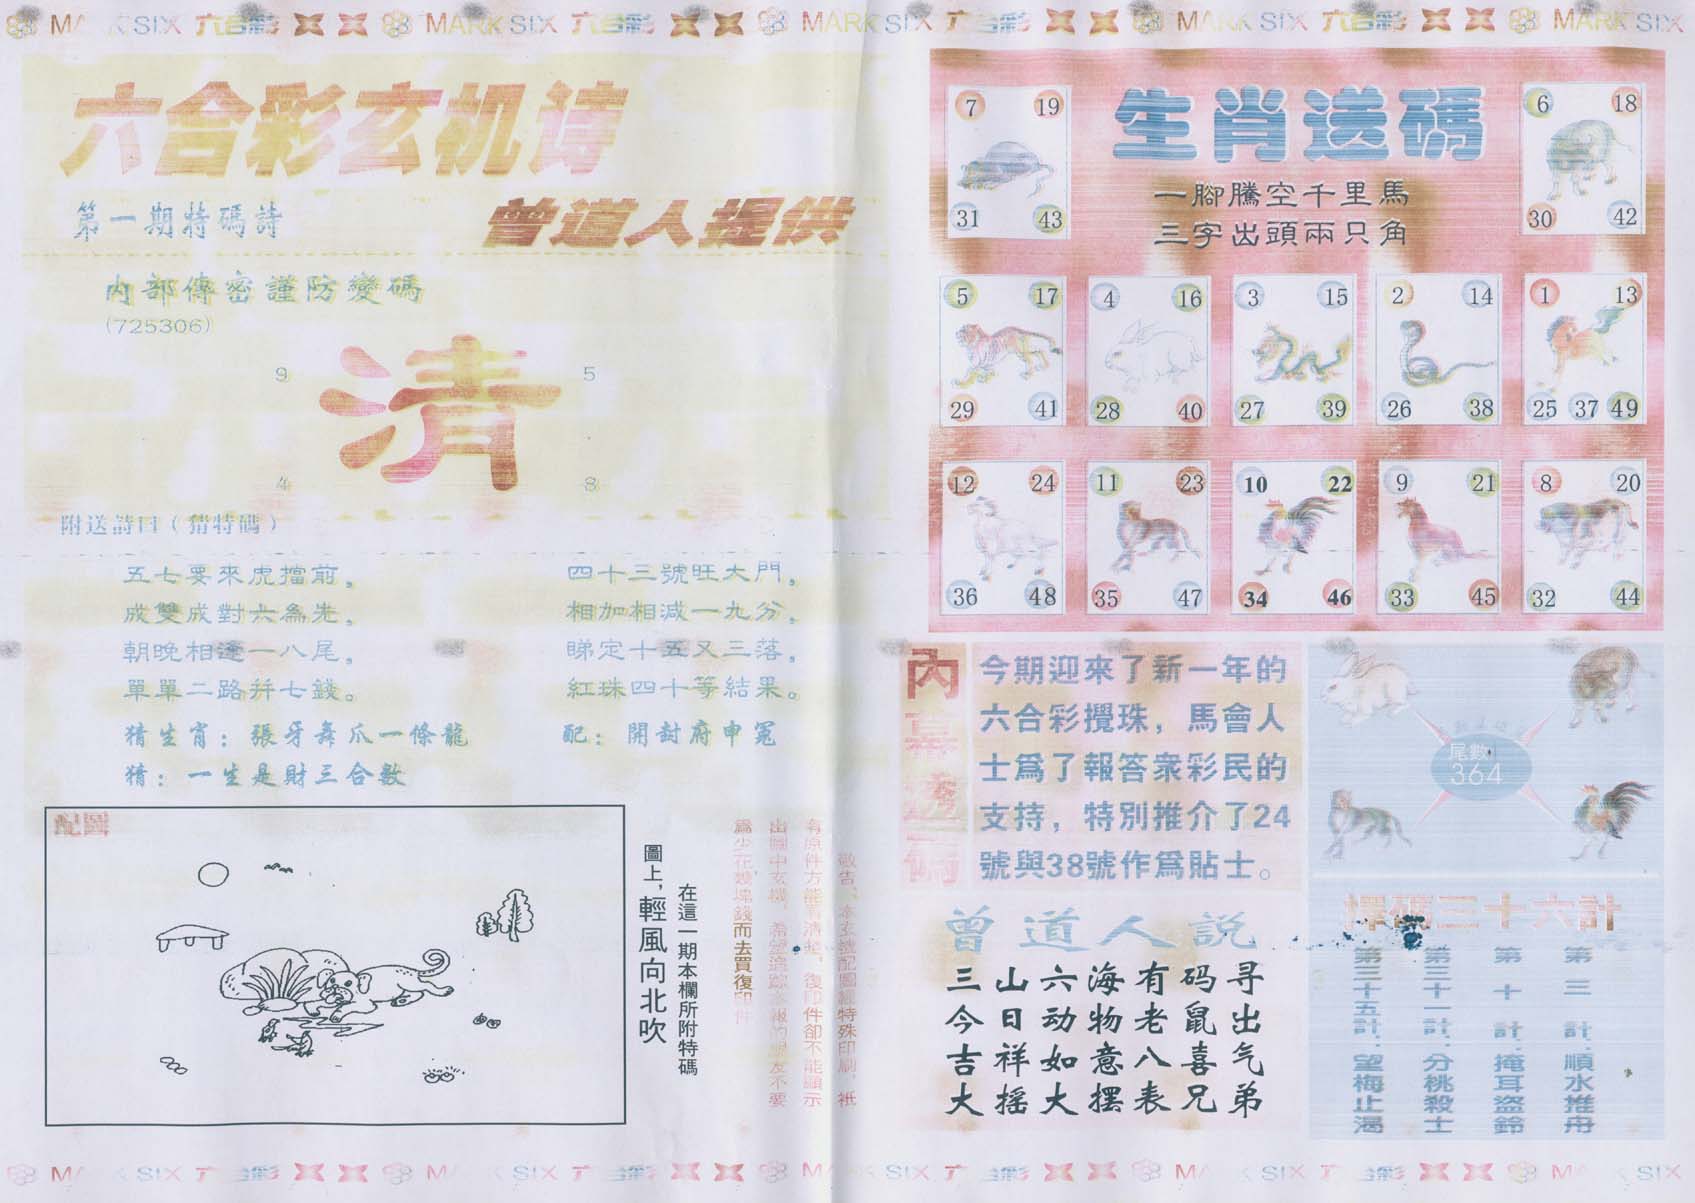 MARK SIX 六合彩 MARK SIX 六合彩 MARK SIX 六合彩 MARK SIX 六合彩 MARK SIX
六合彩玄机诗
第一期特碼詩
曾道人提供
内部傳密謹防變碼
(725306)
9 5
清
4 8
附送詩11（猜特碼）
五七要來虎擋前。
成雙成對六為先。
朝晚相逢一八尾。
單單二路幷七錢。
四十三號旺大門。
相加相減一九分。
睇定十五又三落。
紅珠四十等結果。
猜生肖：張牙舞爪一條龍
配：開封府申冤
猜：一生是財三合數
配圖
在這一期本欄所附特碼
圖上，輕風向北吹
敬告：本玄機配圖經特殊印刷，祇
有原件方能看清楚，復印件卻不能顯示
出圖中玄機，希望追踪本報的朋友不要
爲少花幾塊錢而去買復印件
生肖送碼
一腳騰空千里馬
三字出頭兩只角
7 19
31 43
6 18
30 42
5 17
29 41
4 16
28 40
3 15
27 39
2 14
26 38
1 13
25 37 49
12 24
36 48
11 23
35 47
10 22
34 46
9 21
33 45
8 20
32 44
內幕透碼
今期迎來了新一年的
六合彩攪珠，馬會人
士爲了報答衆彩民的
支持，特別推介了24
號與38號作爲貼士。
尾數
364
曾道人説
三山六海有码寻
今日动物老鼠出
吉祥如意八喜气
大摇大摆表兄弟
擇碼三十六計
第三計：順水推舟
第十計：掩耳盜鈴
第三十一計：分桃殺士
第三十五計：望梅止渴
MARK SIX 六合彩 MARK SIX 六合彩 MARK SIX 六合彩 MARK SIX 六合彩 MARK SIX